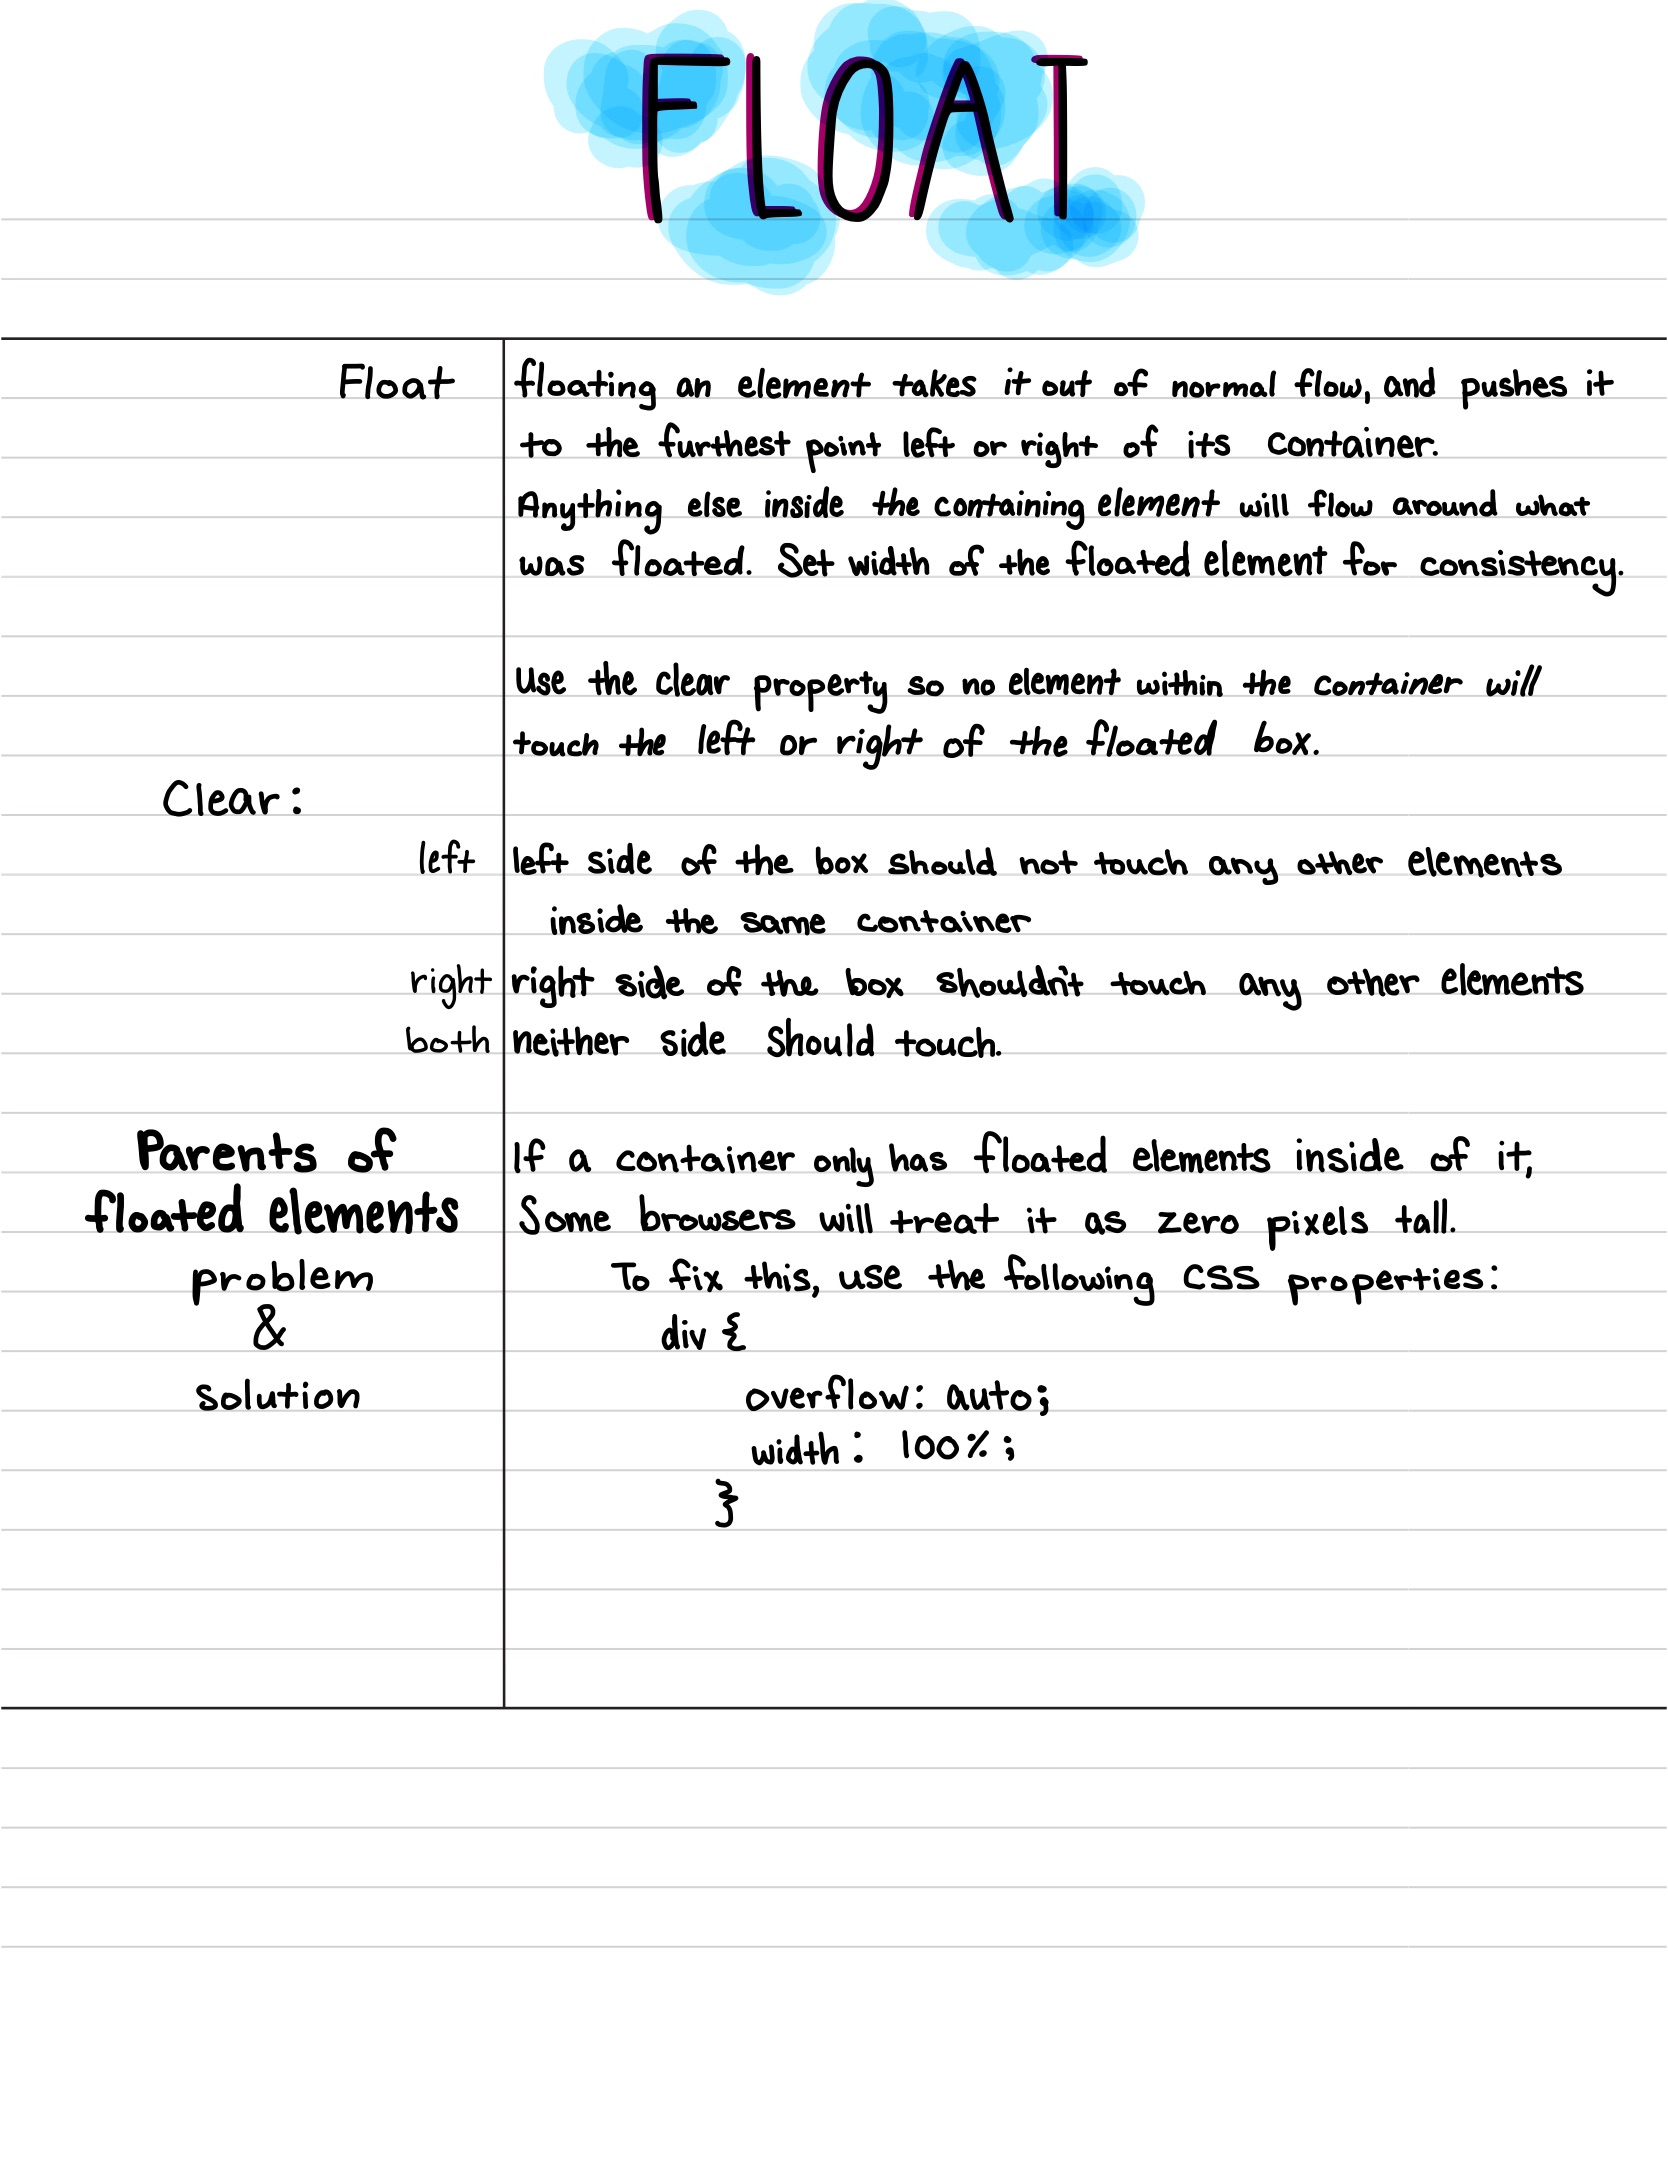 FLOAT
Float
floating an element takes it out of normal flow, and pushes it
to the furthest point left or right of its container.
Anything else inside the containing element will flow around what
was floated. Set width of the floated element for consistency.
Use the clear property so no element within the container will
touch the left or right of the floated box.
Clear:
left
left side of the box should not touch any other elements
inside the same container
right
right side of the box shouldn't touch any other elements
both
neither side should touch.
Parents of
floated elements
problem
&
solution
If a container only has floated elements inside of it,
Some browsers will treat it as zero pixels tall.
To fix this, use the following CSS properties:
div {
overflow: auto;
width: 100%;
}